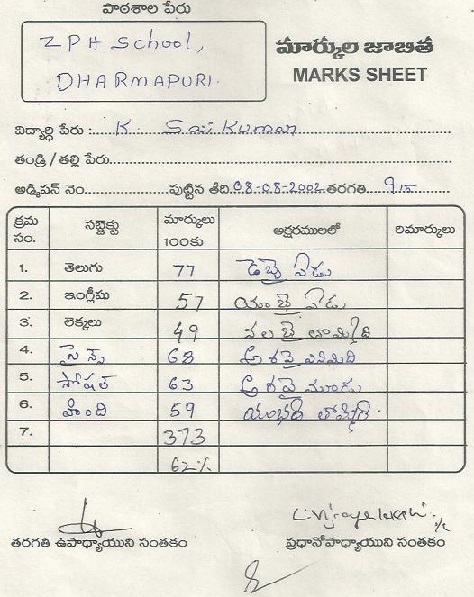 పాఠశాల పేరు
ZPH School,
DHARMAPURI.
మార్కుల జాబిత
MARKS SHEET
విద్యార్థి పేరు :.... K. Sai Kumar
తండ్రి / తల్లి పేరు
అడ్మిషన్ నెం. పుట్టిన తేది. 08-08-2002 తరగతి
క్రమ సం. సబ్జెక్టు మార్కులు 100కు అక్షరములలో రిమార్కులు
1. తెలుగు 77 డెబ్బై ఏడు
2. ఇంగ్లీషు 57 యాబై ఏడు
3. లెక్కలు 49 నలబై తొమ్మిది
4. సైన్స్ 68 అరవై ఎనిమిది
5. సోషల్ 63 అరవై మూడు
6. హింది 59 యాంభై తొమ్మిది
7. 373
62%
తరగతి ఉపాధ్యాయుని సంతకం ప్రధానోపాధ్యాయుని సంతకం